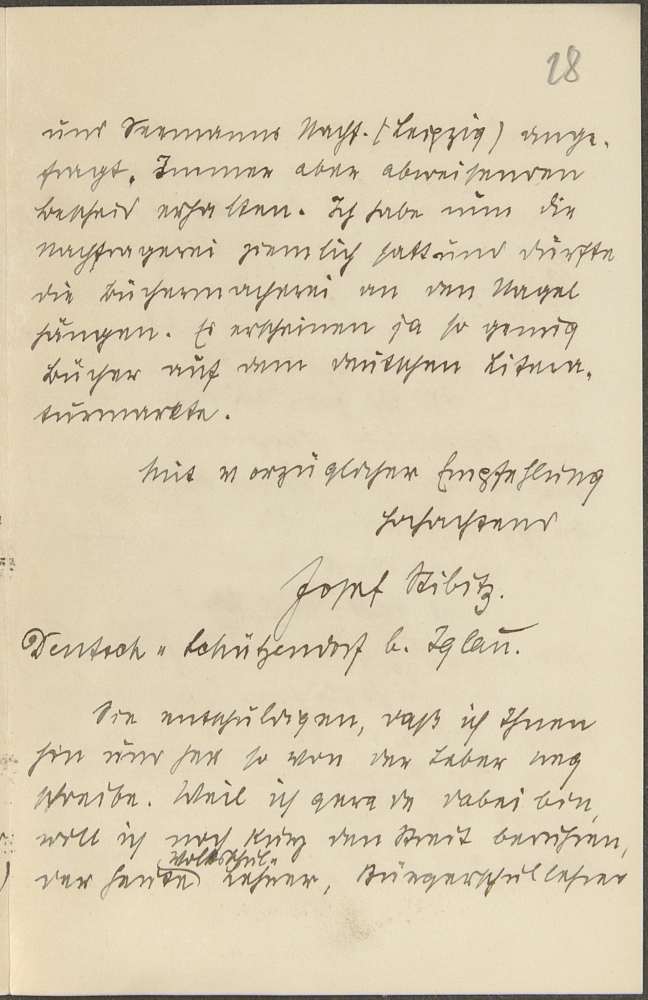 28
und Seemanns Nachf. (Leipzig) ange-
fragt. Immer aber abweisenden
Bescheid erhalten. Ich habe nun die
Nachfragerei ziemlich satt und dürfte
die Büchermacherei an den Nagel
hängen. Es erscheinen ja so genug
Bücher auf dem deutschen Litera-
turmarkte.
Mit vorzüglicher Empfehlung
hochachtend
Josef Stibitz.
Deutsch-Schützendorf b. Iglau.
Sie entschuldigen, daß ich Ihnen
hin und her so von der Leber weg
schreibe. Weil ich gerade dabei bin,
will ich noch kurz den Streit berühren,
Volksschul-
der heute Lehrer, Bürgerschullehrer